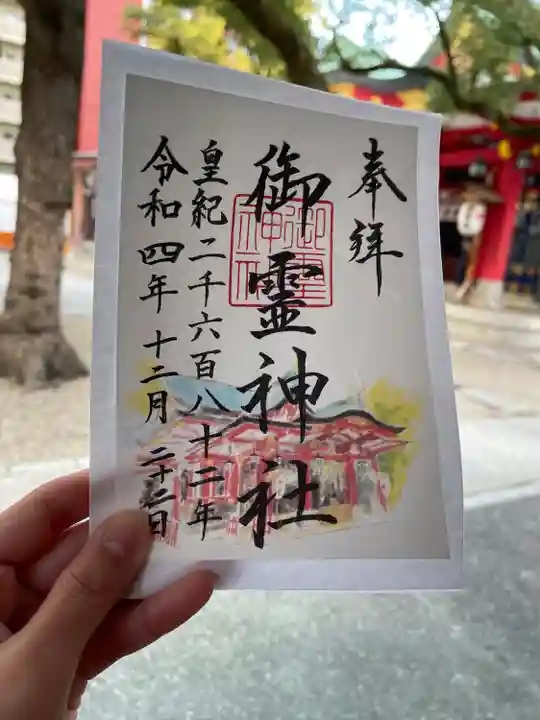 奉拝
御霊神社
御霊神社
皇紀二千六百八十二年
令和四年十二月二十二日